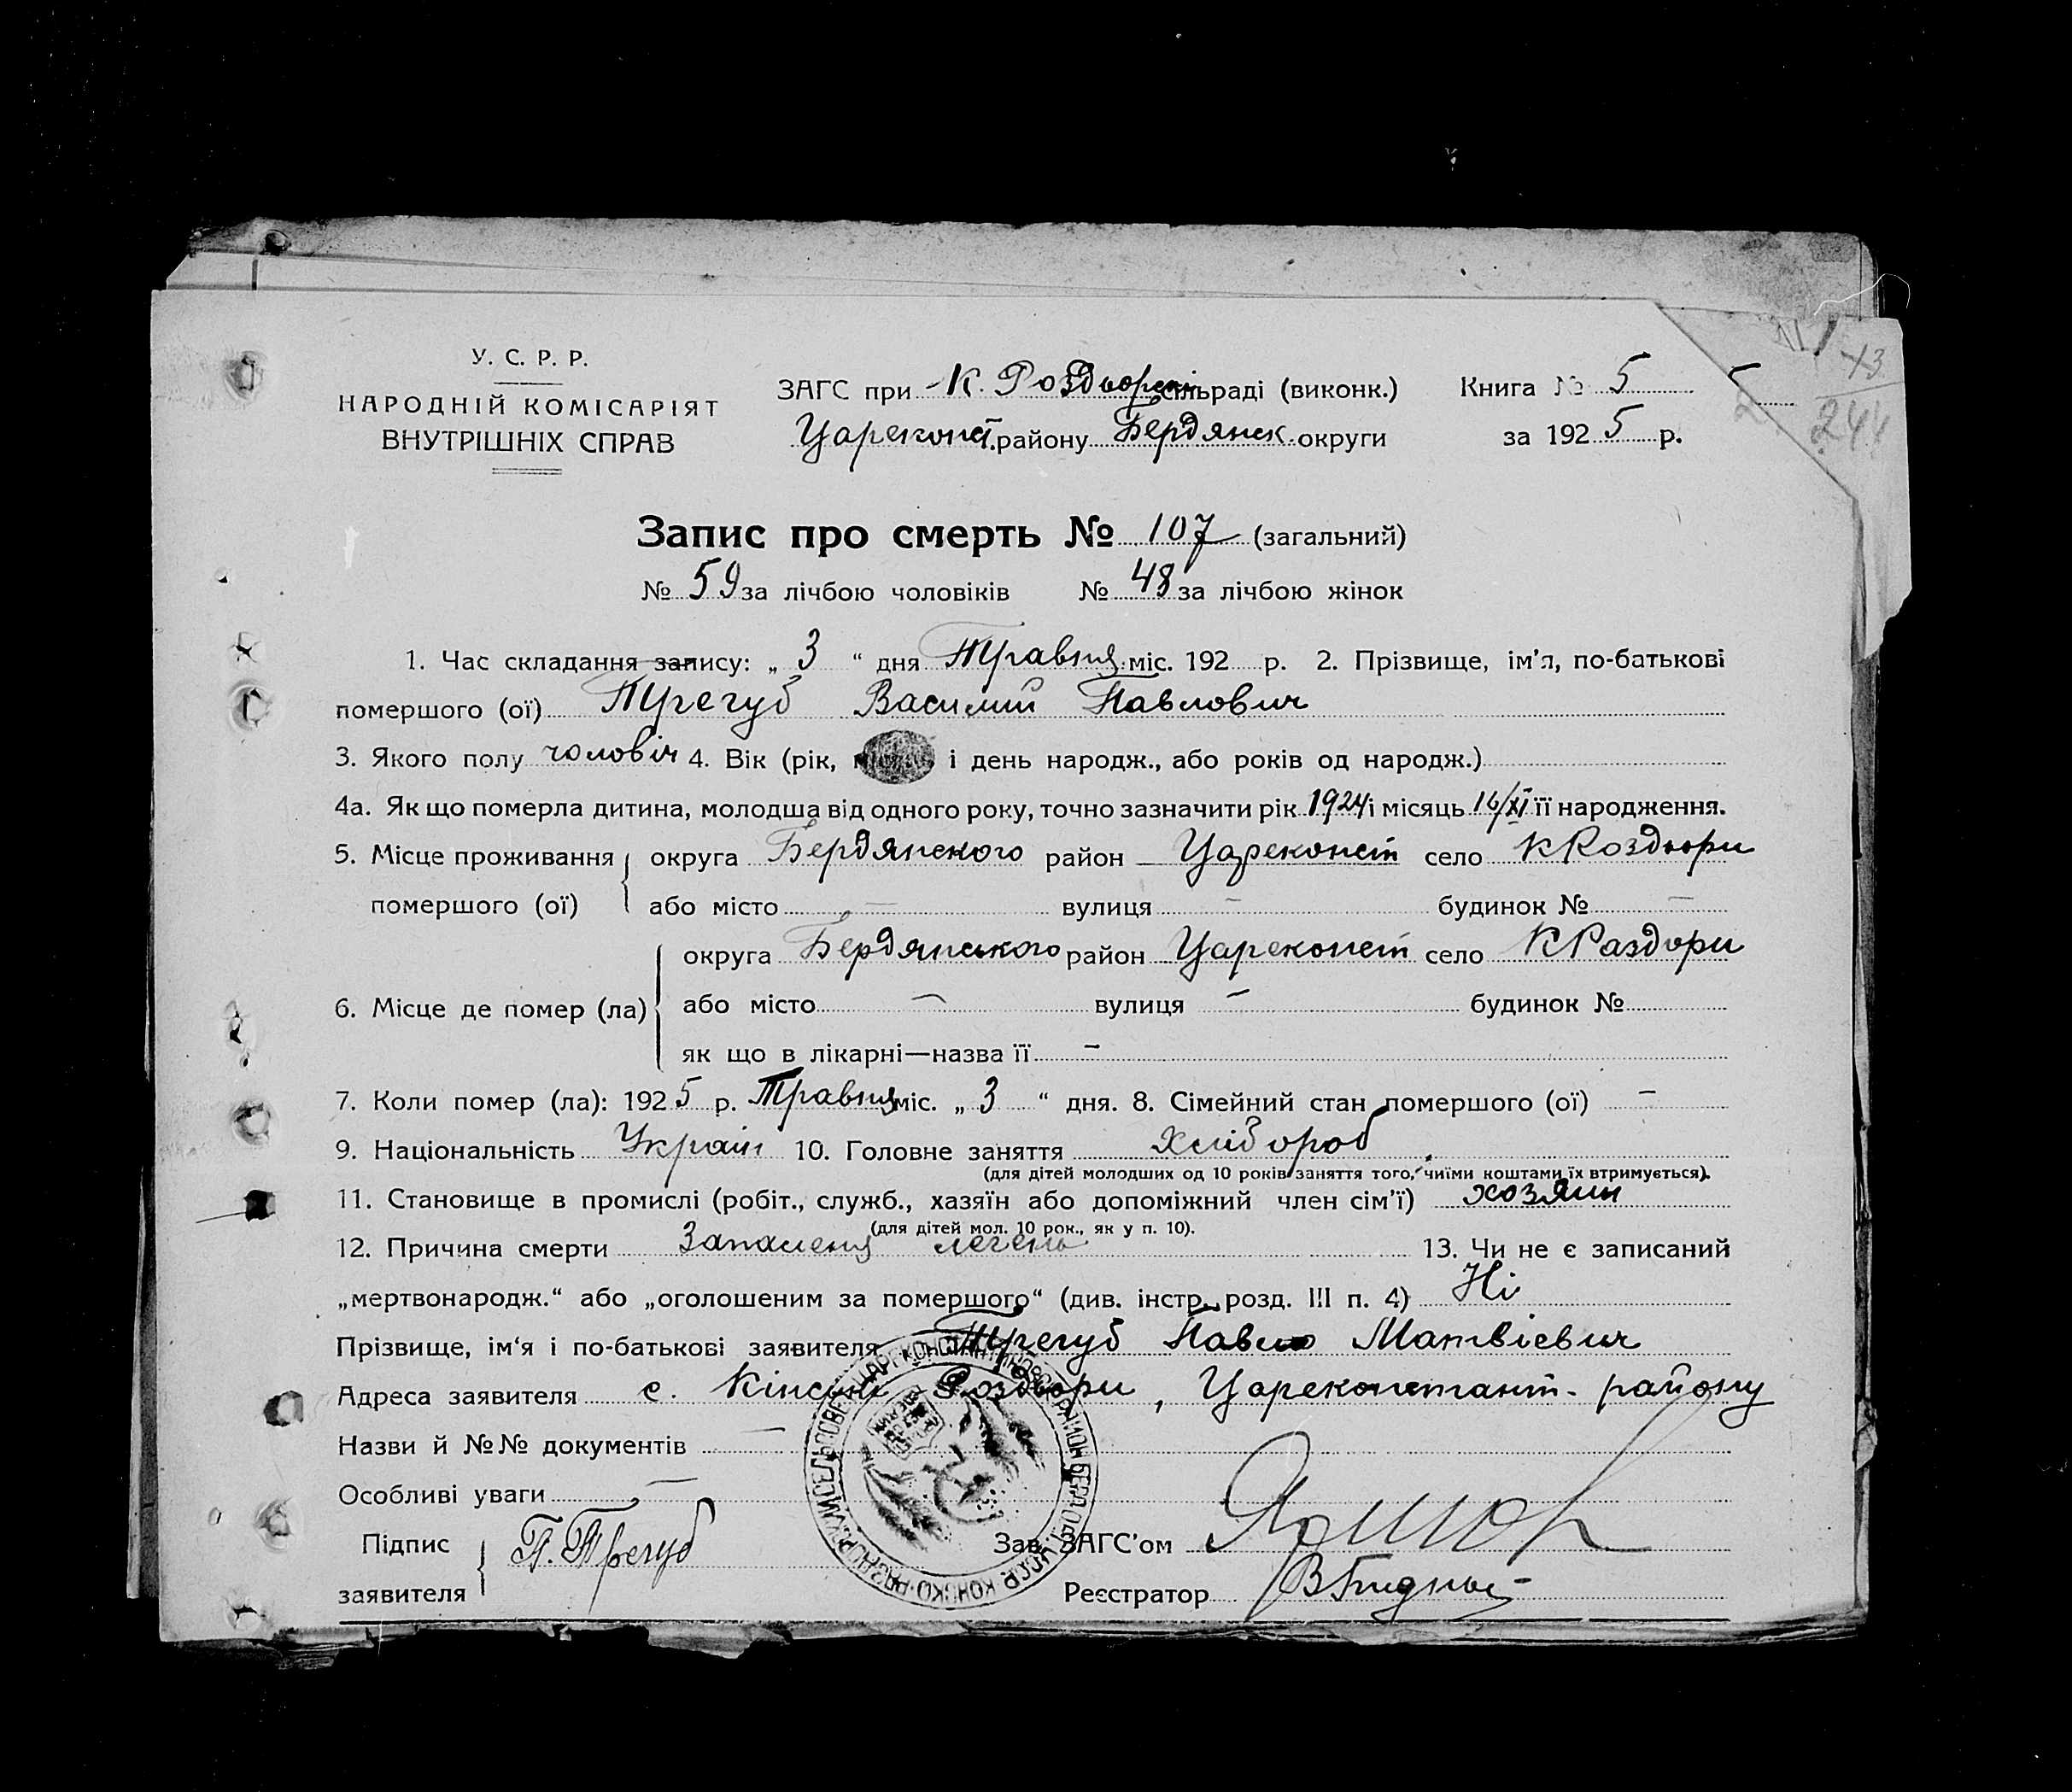 У. С. Р. Р.
НАРОДНІЙ КОМІСАРІЯТ
ВНУТРІШНІХ СПРАВ
ЗАГС при К. Роздорскі сільраді (виконк.)
Цареконст. району Бердянск. округи
Книга № 5
за 1925 р.
13
244
Запис про смерть № 107 (загальний)
№ 59 за лічбою чоловіків № 48 за лічбою жінок
1. Час складання запису: „ 3 “ дня Травня міс. 192 р. 2. Прізвище, ім'я, по-батькові
помершого (ої) Трегуб Василий Павлович
3. Якого полу чоловіч 4. Вік (рік, і день народж., або років од народж.)
4а. Як що померла дитина, молодша від одного року, точно зазначити рік 1924 і місяць 16/XI її народження.
5. Місце проживання помершого (ої) округа Бердянского район Цареконст село К Роздори
або місто — вулиця — будинок № —
6. Місце де помер (ла) округа Бердянського район Цареконст село К Раздори
або місто — вулиця — будинок №
як що в лікарні—назва її —
7. Коли помер (ла): 1925 р. Травня міс. „ 3 “ дня. 8. Сімейний стан помершого (ої) —
9. Національність Украін 10. Головне заняття Хлібороб
(для дітей молодших од 10 років заняття того, чиїми коштами їх втримується).
11. Становище в промислі (робіт., служб., хазяїн або допоміжний член сім'ї) хозяин
(для дітей мол. 10 рок., як у п. 10).
12. Причина смерти Запаленя легень 13. Чи не є записаний
„мертвонародж.“ або „оголошеним за помершого“ (див. інстр. розд. III п. 4) Ні
Прізвище, ім'я і по-батькові заявителя Трегуб Павло Матвієвич
Адреса заявителя с. Кінські Роздори, Цареконстант. району
Назви й №№ документів —
Особливі уваги —
Підпис заявителя П. Трегуб
Зав. ЗАГС'ом
Реєстратор